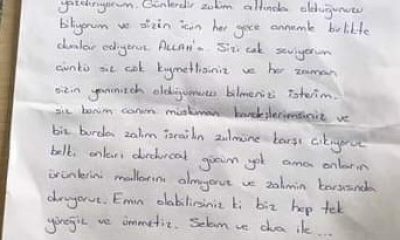 yazdırıyorum. Günlerdir zulüm altında olduğunuzu
biliyorum ve sizin için her gece annemle birlikte
dualar ediyoruz ALLAH'a. Sizi çok seviyorum
çünkü siz çok kıymetlisiniz ve her zaman
sizin yanınızda olduğumuzu bilmenizi isterim.
siz benim canım müslüman kardeşlerimsiniz ve
biz burda zalim israilin zulmüne karşı çıkıyoruz
belki onları durduracak gücüm yok ama onların
ürünlerini mallarını almıyoruz ve zalimin karşısında
duruyoruz. Emin olabilirsiniz ki biz hep tek
yüreğiz ve ümmetiz. Selam ve dua ile...